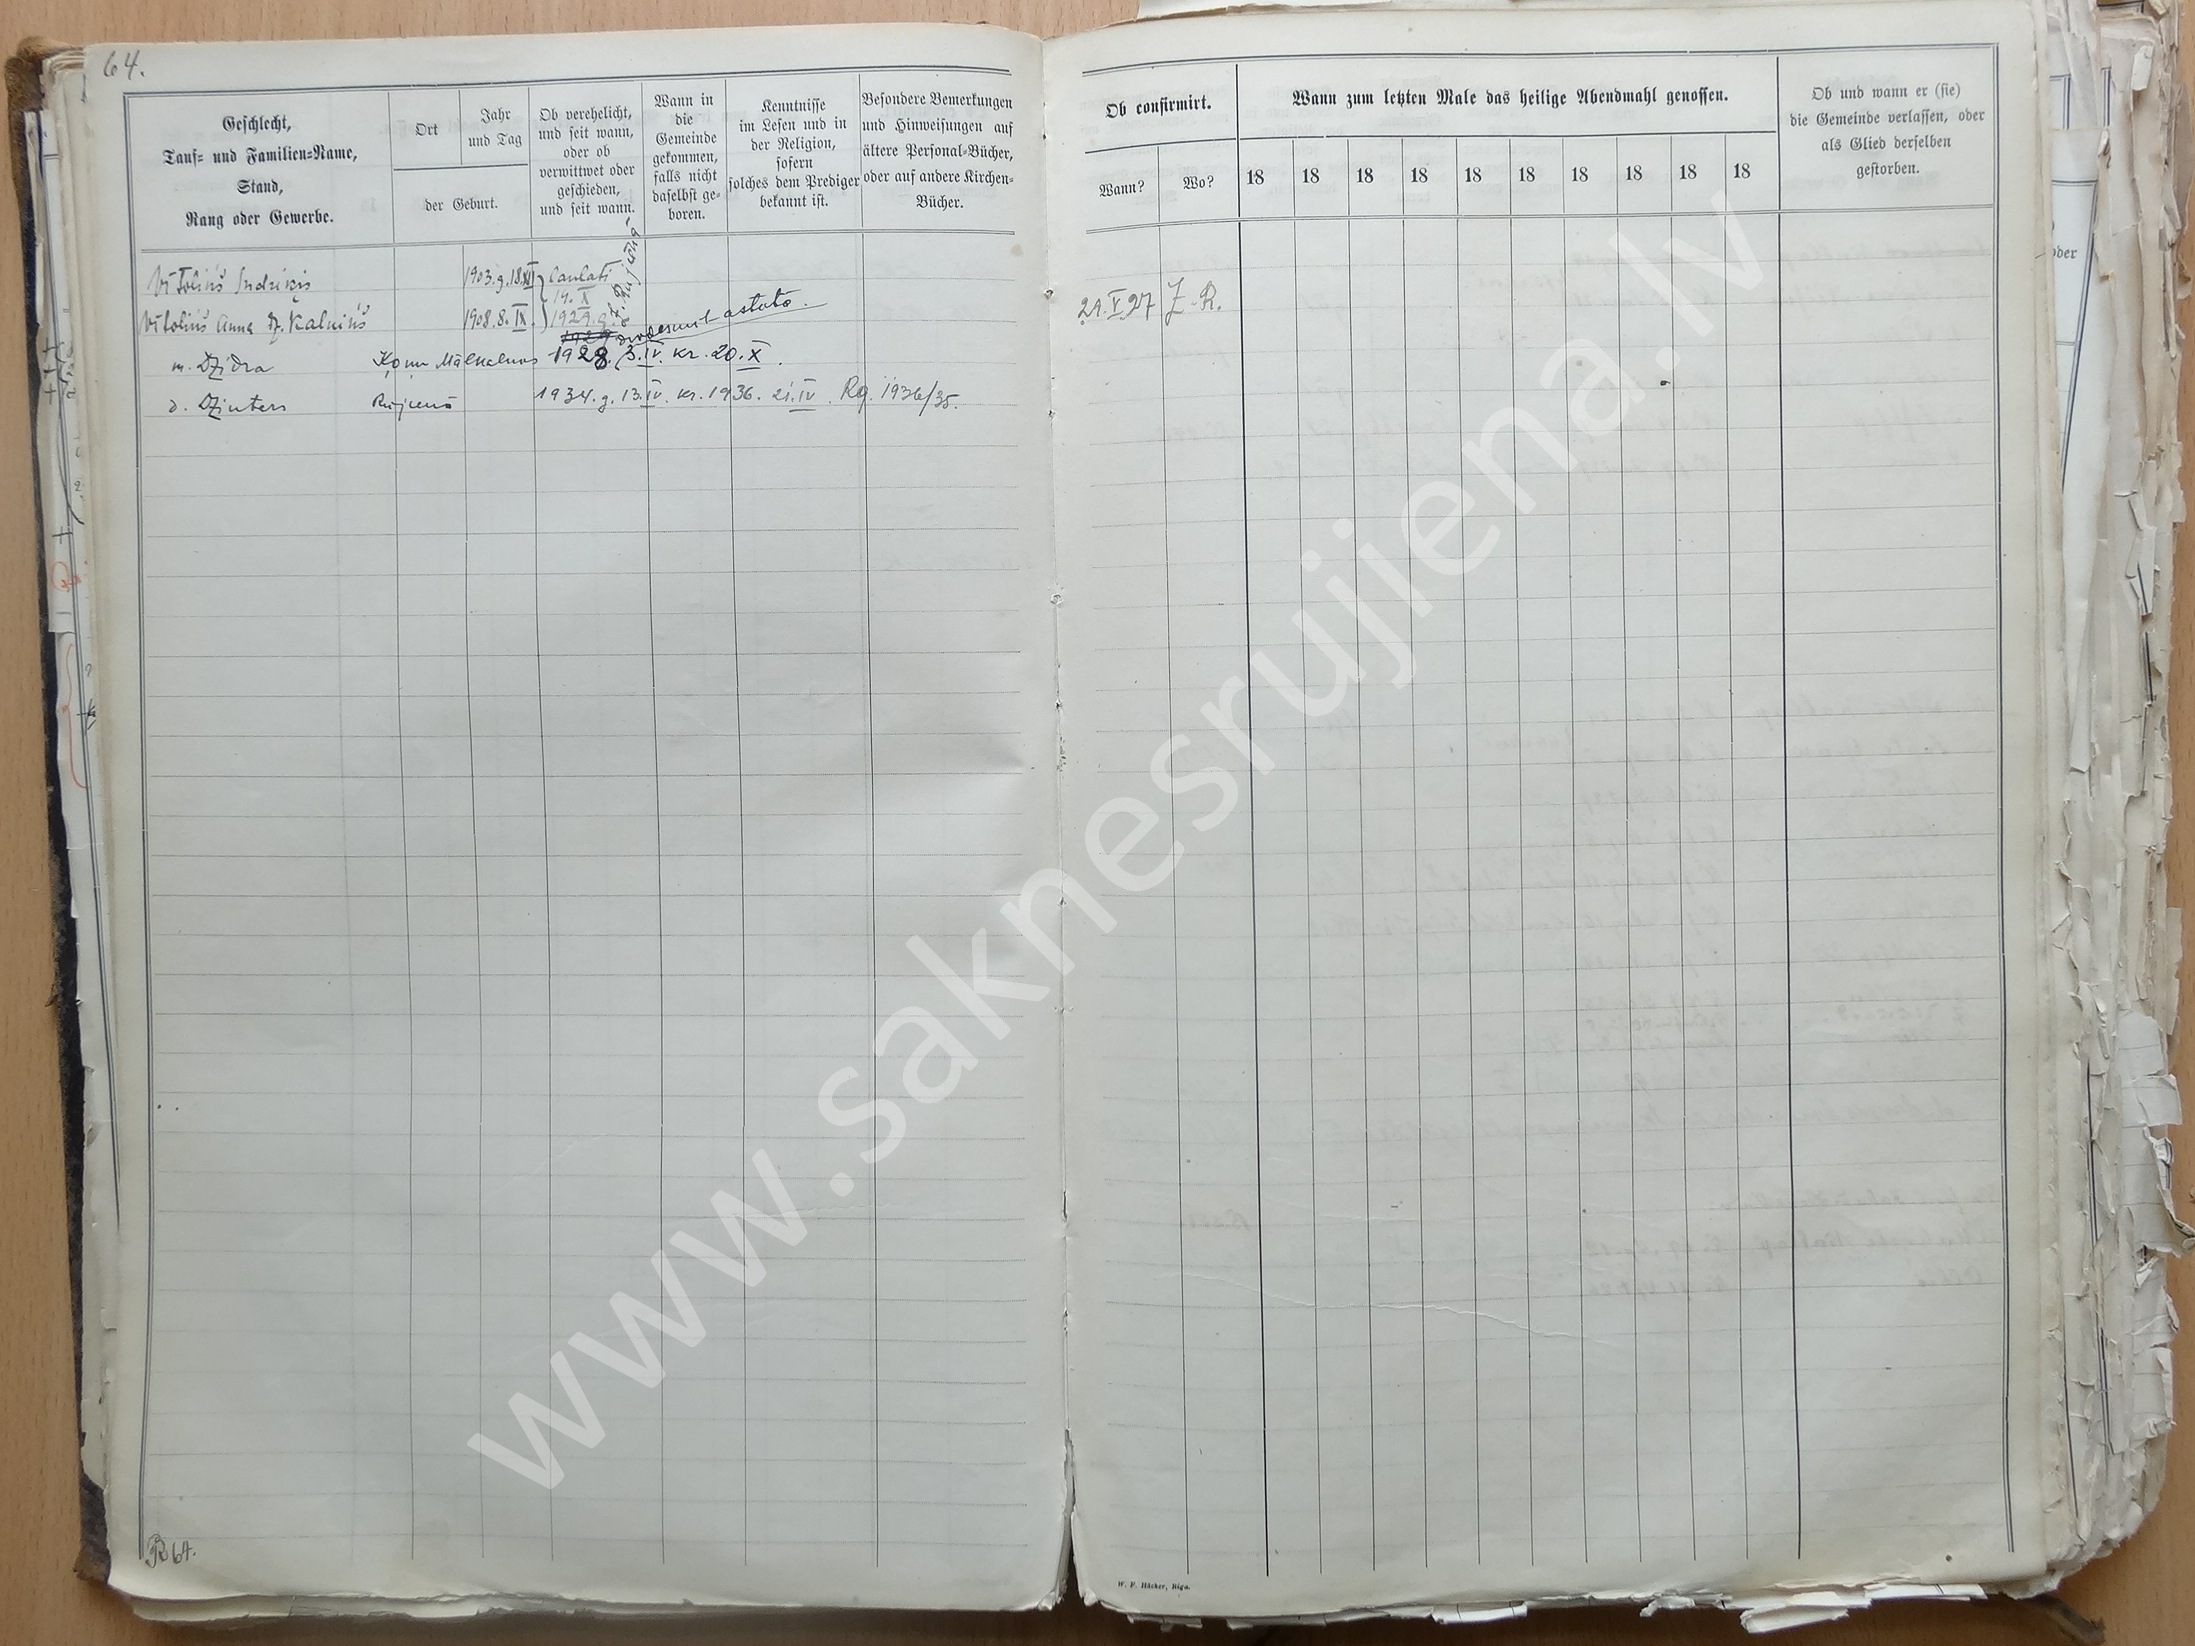 64.
Geschlecht,
Tauf= und Familien=Name,
Stand,
Rang oder Gewerbe.
Ort
Jahr
und Tag
der Geburt.
Ob verehelicht,
und seit wann,
oder ob
verwittwet oder
geschieden,
und seit wann.
Wann in
die
Gemeinde
gekommen,
falls nicht
daselbst ge=
boren.
Kenntnisse
im Lesen und in
der Religion,
sofern
solches dem Prediger
bekannt ist.
Besondere Bemerkungen
und Hinweisungen auf
ältere Personal=Bücher,
oder auf andere Kirchen=
Bücher.
Vītoliņš Indriķis 1903.g.18.XII Laulāti
14. X
Vītoliņš Anna dz. Kalniņš 1908.8.IX. 1929.g.
1929. divdesmit astotā.
m. Dzidra Ķoņu Mālkalnos 1928. 3.IV. kr. 20.X.
d. Dzinters Rūjienā 1934.g. 13.IV. kr. 1936. 21.IV. Rg. 1936/35.
R 64.
Ob confirmirt.
Wann?
Wo?
Wann zum letzten Male das heilige Abendmahl genossen.
18 18 18 18 18 18 18 18 18 18
Ob und wann er (sie)
die Gemeinde verlassen, oder
als Glied derselben
gestorben.
29.V.27 Z-R.
W. F. Häcker, Riga.
oder
www.saknesrujiena.lv